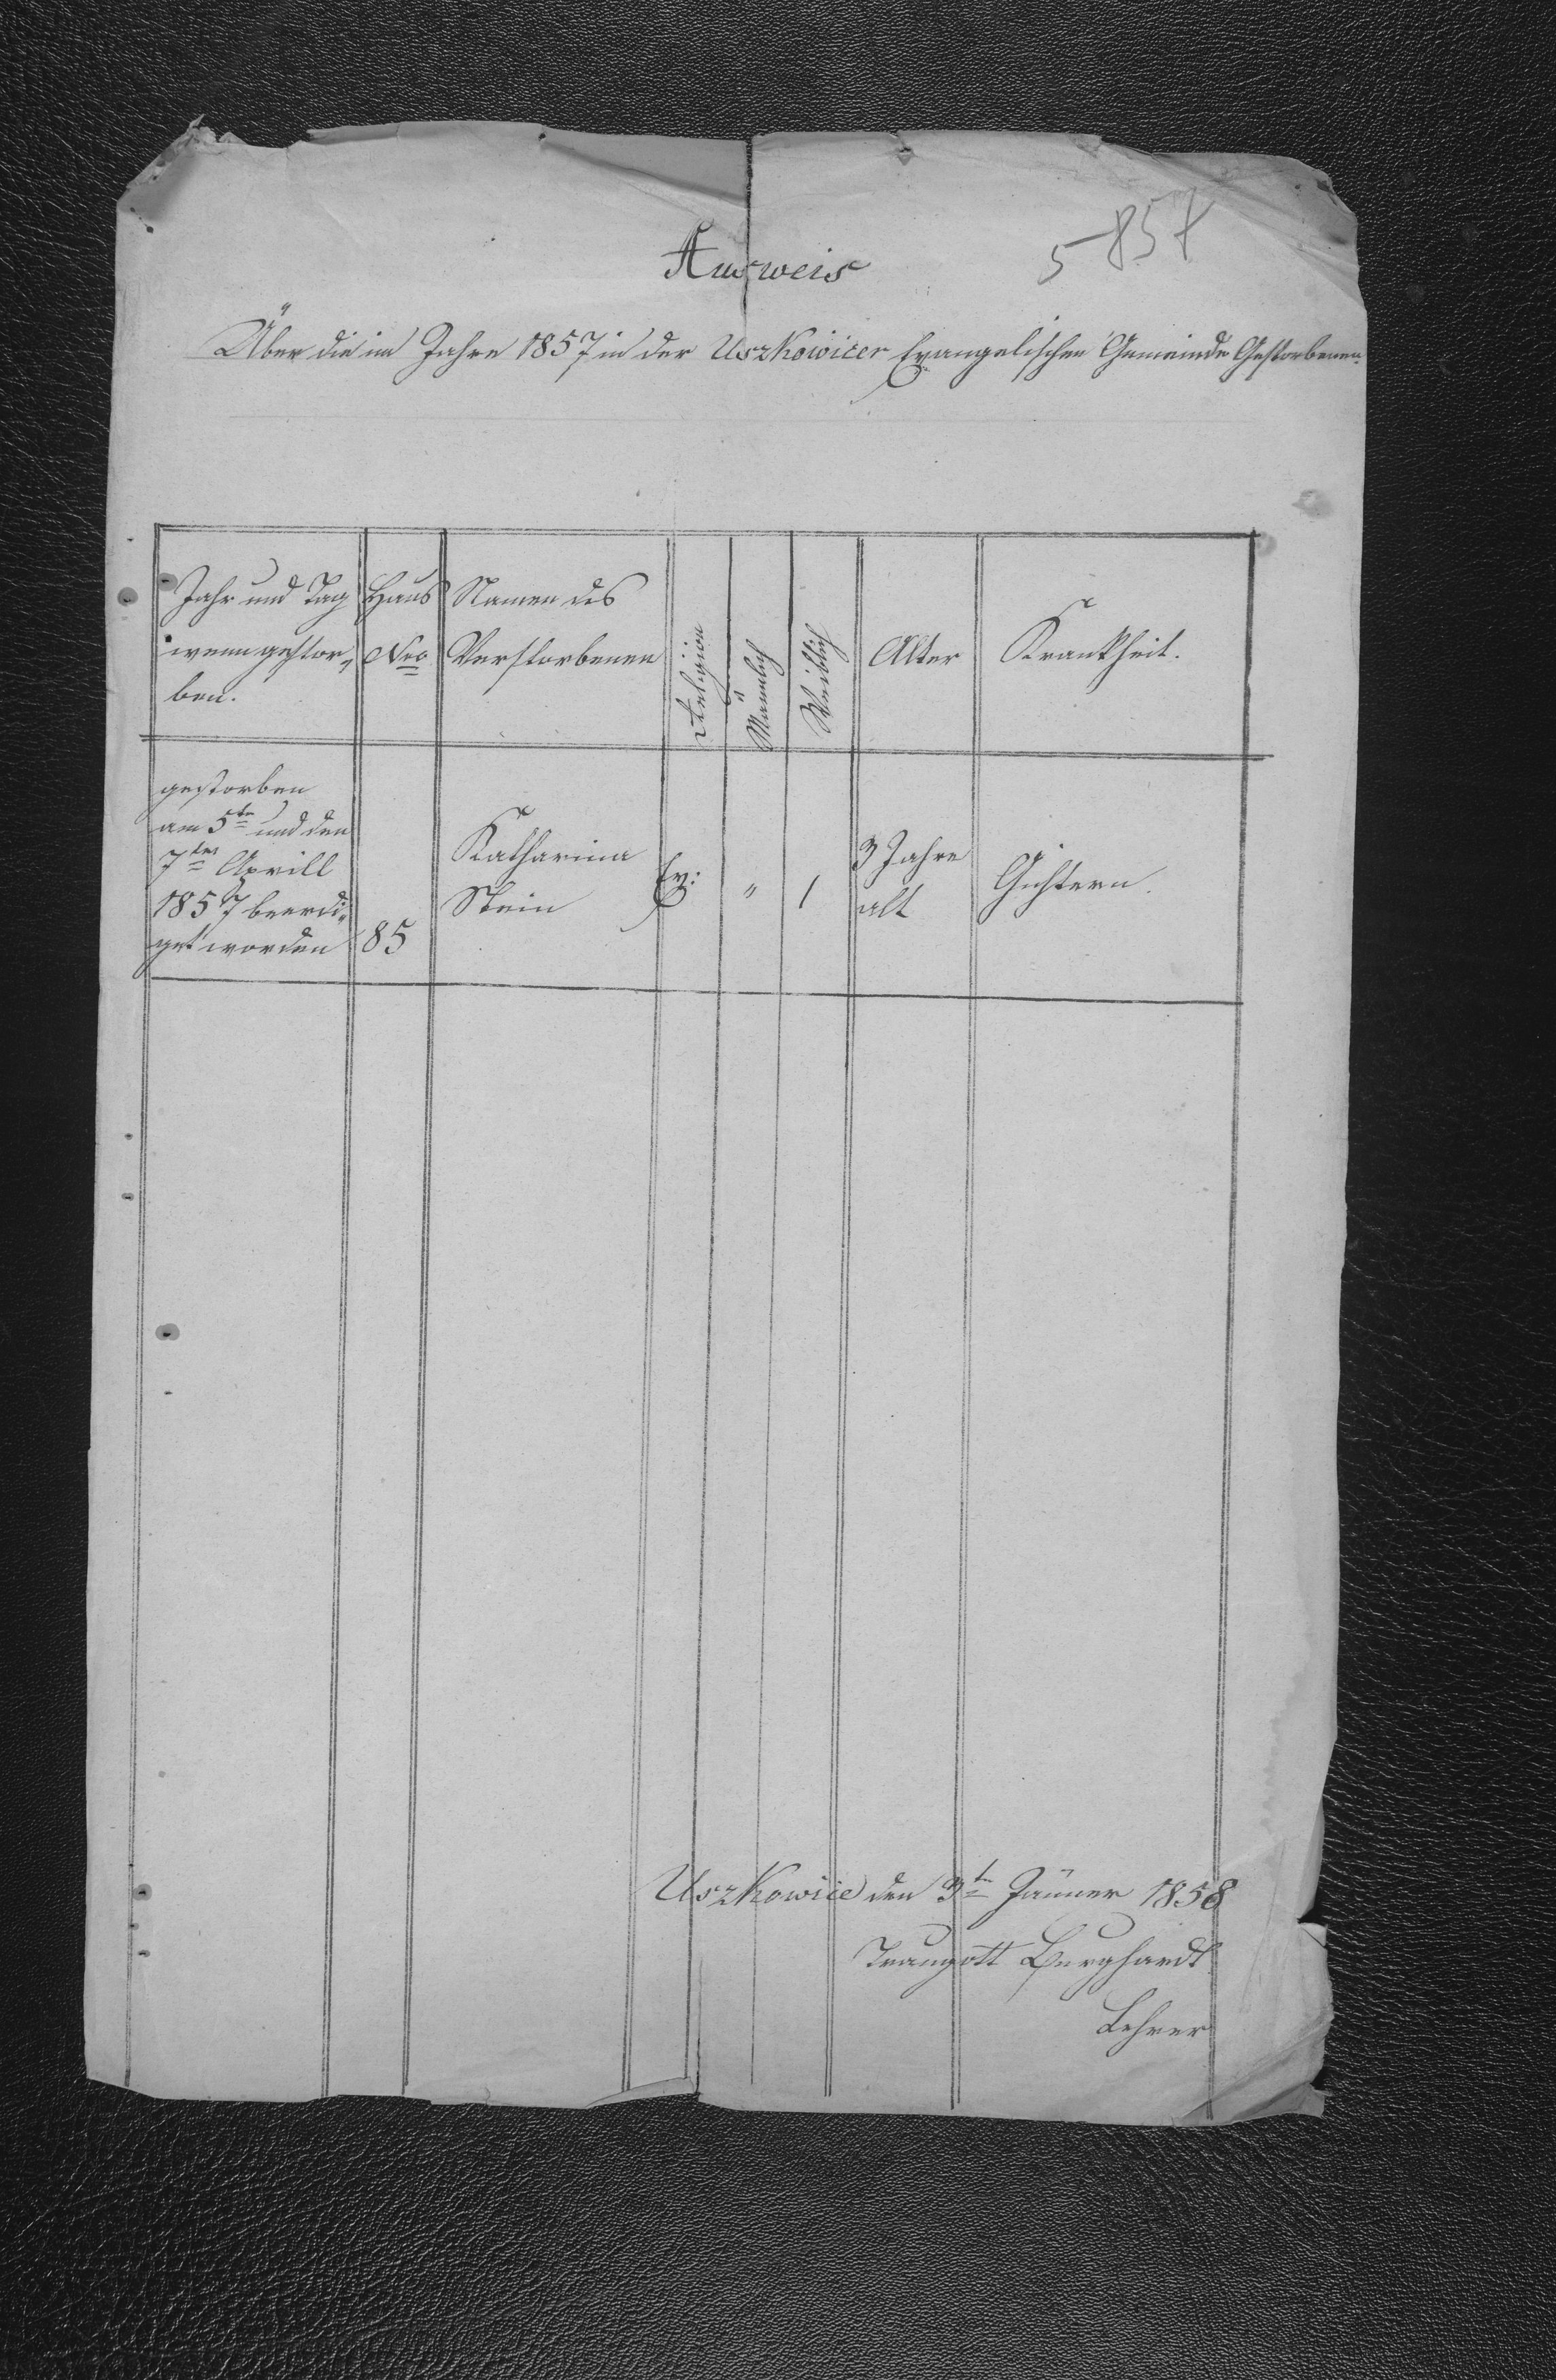 Ausweis
5 857
Über die im Jahre 1857 in der Uszkowicer Evangelischen Gemeinde Gestorbenen.
Jahr und Tag
wenn gestor„
ben.
Haus
Nro
Namen des
Verstorbenen
Religion
Mänlich
Weiblich
Alter
Krankheit.
gestorben
am 5ten und den
7ten Aprill
1857 beerdi„
get worden
85
Katharina
Stein
Ev:
"
1
3 Jahre
alt
Gichtern.
Uszkowice den 3ten Jänner 1858
Traugott Burghardt
Lehrer